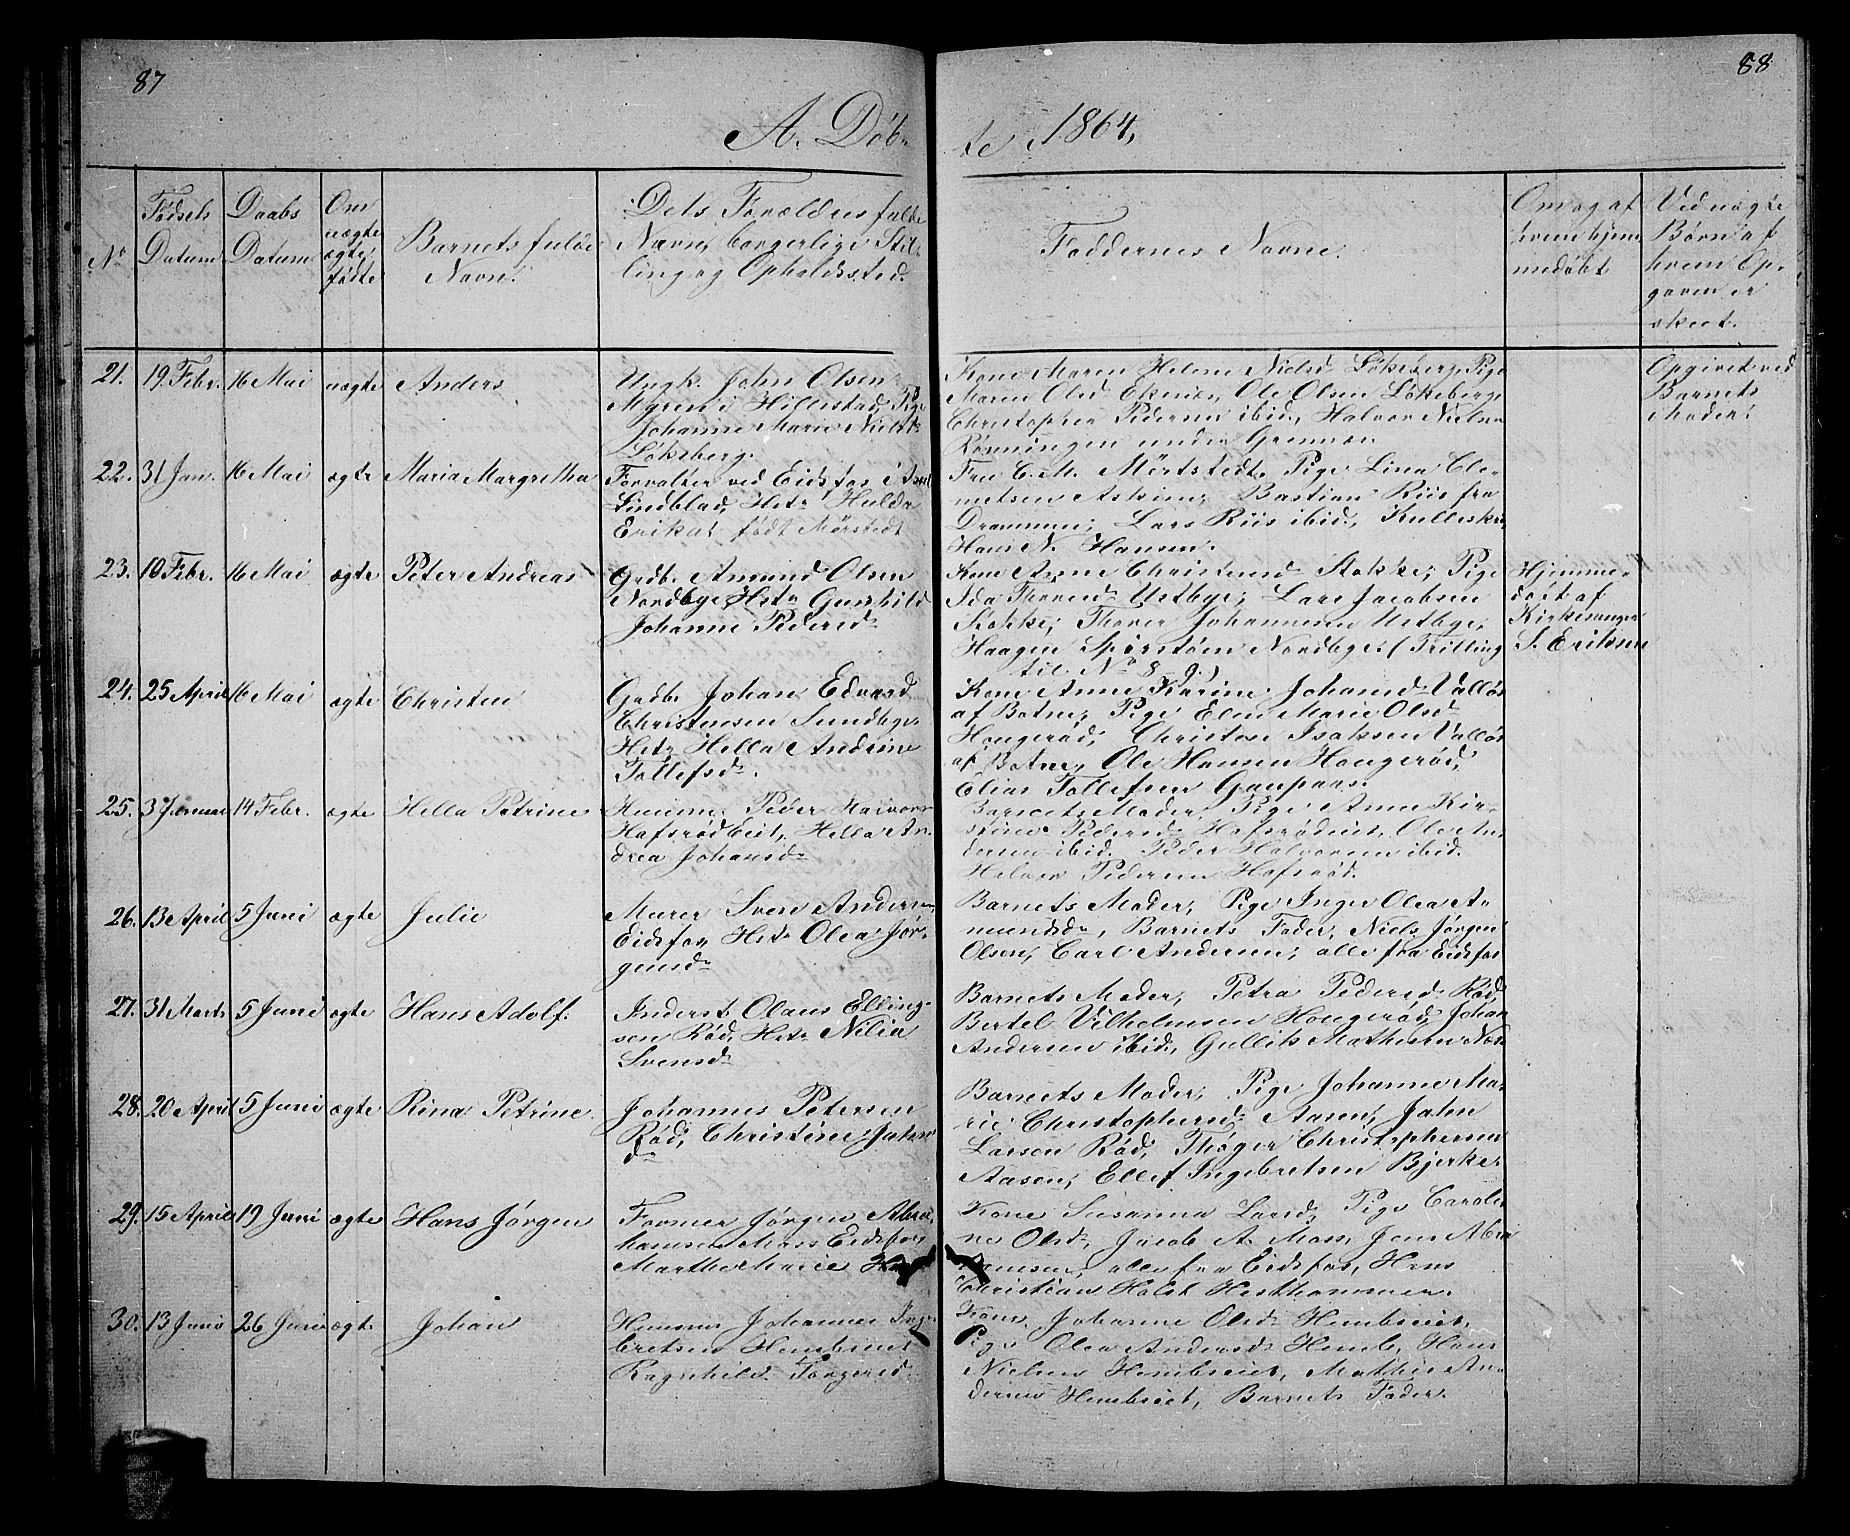 87
88
A. Døb-
te 1864,
No
Fødsels Datum
Daabs Datum
Om uægte ægte fødte
Barnets fulde Navn.
Dets Forældres fulde Navn, borgerlige Stilling og Opholdssted.
Faddernes Navne.
Om og af hvem hjemmedøbt
Ved uægte Børn af hvem Opgaven er skeet.
21. 19 Febr. 16 Mai uægte Anders
Ungk. John Olsen
Myren i Hillestad, Pige
Johanne Marie Nielsd.
Løkeberg.
Kone Maren Helene Nielsd Løkeberg, Pige
Maren Olsd Ekenæs, Ole Olsen Løkeberg,
Christopher Pedersen ibid, Halvor Nielsen
Rønningen under Grennen
Opgivet ved
Barnets
Moder.
22. 31 Jan. 16 Mai ægte Maria Margretha
Forvalter ved Eidsfos i Axel
Lindblad, Hst. Hulda
Erika, født Mørstedt
Fru C. M. Mörtstedt, Pige Lina Cle-
metsen Askim, Bastian Riis fra
Drammen, Lars Riis ibid,
Hans N. Hansen.
23. 10 Febr. 16 Mai ægte Peter Andreas
Grdb. Amund Olsen
Nordbye Hst. Gunhild
Johanne Pedersd
Kone Anne Christensd Stokke, Pige
Ida Thorsd Uetbye, Lars Jacobsen
Stokke, Thorer Johannesen Uetbye,
Haagen Nordbye. (Tvilling
til No 8 .)
Hjemme-
døbt af
Kirkesanger
S. Eriksen
24. 25 April 16 Mai ægte Christen
Grdb. Johan Edvard
Christensen Sundbye
Hst. Hella Andrine
Tollefsd.
Kone Anne Karine Johansd Valløs
af Botne, Pige Elen Marie Olsd
Hougerød, Christen Isaksen Valløs
af Botne, Ole Hansen Hougerød,
Elias Tollefsen Gaupaas.
25. 3 Januar 14 Febr. ægte Hella Petrine
Huusm. Peder Halvors
Hafsrød Eiet, Hella An-
drea Johansd
Barnets Moder, Pige Anne Kir-
stine Pedersd Hafsrødeiet, Ole An-
dersen ibid. Peder Halvorsen ibid.
Halvor Pedersen Hafsrød.
26. 13 April 5 Juni ægte Julie
Murer Sven Andersen
Eidsfos, Hst. Olea Jør-
gensd
Barnets Moder, Pige Inger Olea A-
mundsd, Barnets Fader, Niels Jørgen
Olsen, Carl Andersen, alle fra Eidsfos
27. 31 Marts 5 Juni ægte Hans Adolf.
Inderst Olaus Elling-
sen Rød, Hst. Nilia
Svensd
Barnets Moder, Petra Pedersd Rød,
Bertel Vilhelmsen Hougerød, Johan
Andersen ibid, Gullik Mathisen Næs
28. 20 April 5 Juni ægte Rina Petrine
Johannes Petersen
Rød, Christine Jahn
d
Barnets Moder, Pige Johanne Ma-
rie Christophersd Aasen, Jahn
Larsen Rød, Thøger Christophersen
Aasen, Ellef Ingebretsen Bjerke.
29. 15 April 19 Juni ægte Hans Jørgen
Former Jørgen Abra-
hamsen Moss Eidsfos,
Marthe Marie
Kone Susanna Larsd, Pige Caroli-
ne Olsd, Jacob A. Moss, Jens Abra
hamsen, alle fra Eidsfos, Hans
Christian Holst Hestkammer.
30. 13 Juni 26 Juni ægte Johan
Huusm Johannes Inge-
bretsen Hembseiet
Ragnhild Torgersd
Kone Johanne Olsd Hembseiet,
Pige Olea Andersd Hemb, Hans
Nielsen Hembseiet, Mathis An-
dersen Hembseiet, Barnets Fader.